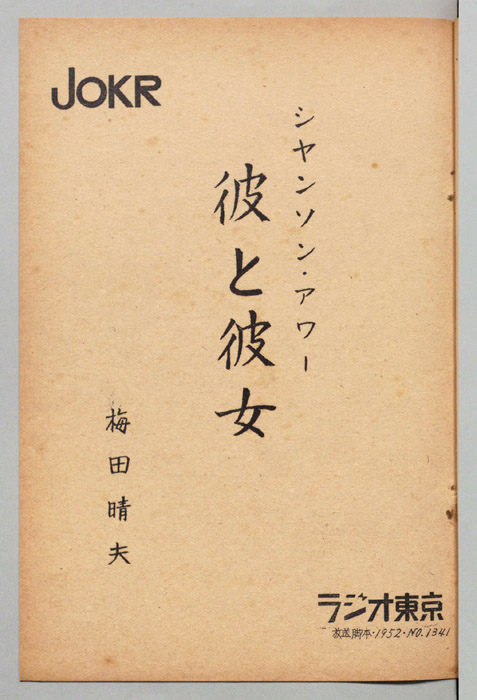 JOKR
シヤンソン・アワー
彼と彼女
梅田晴夫
ラジオ東京
放送脚本・1952・NO.1341